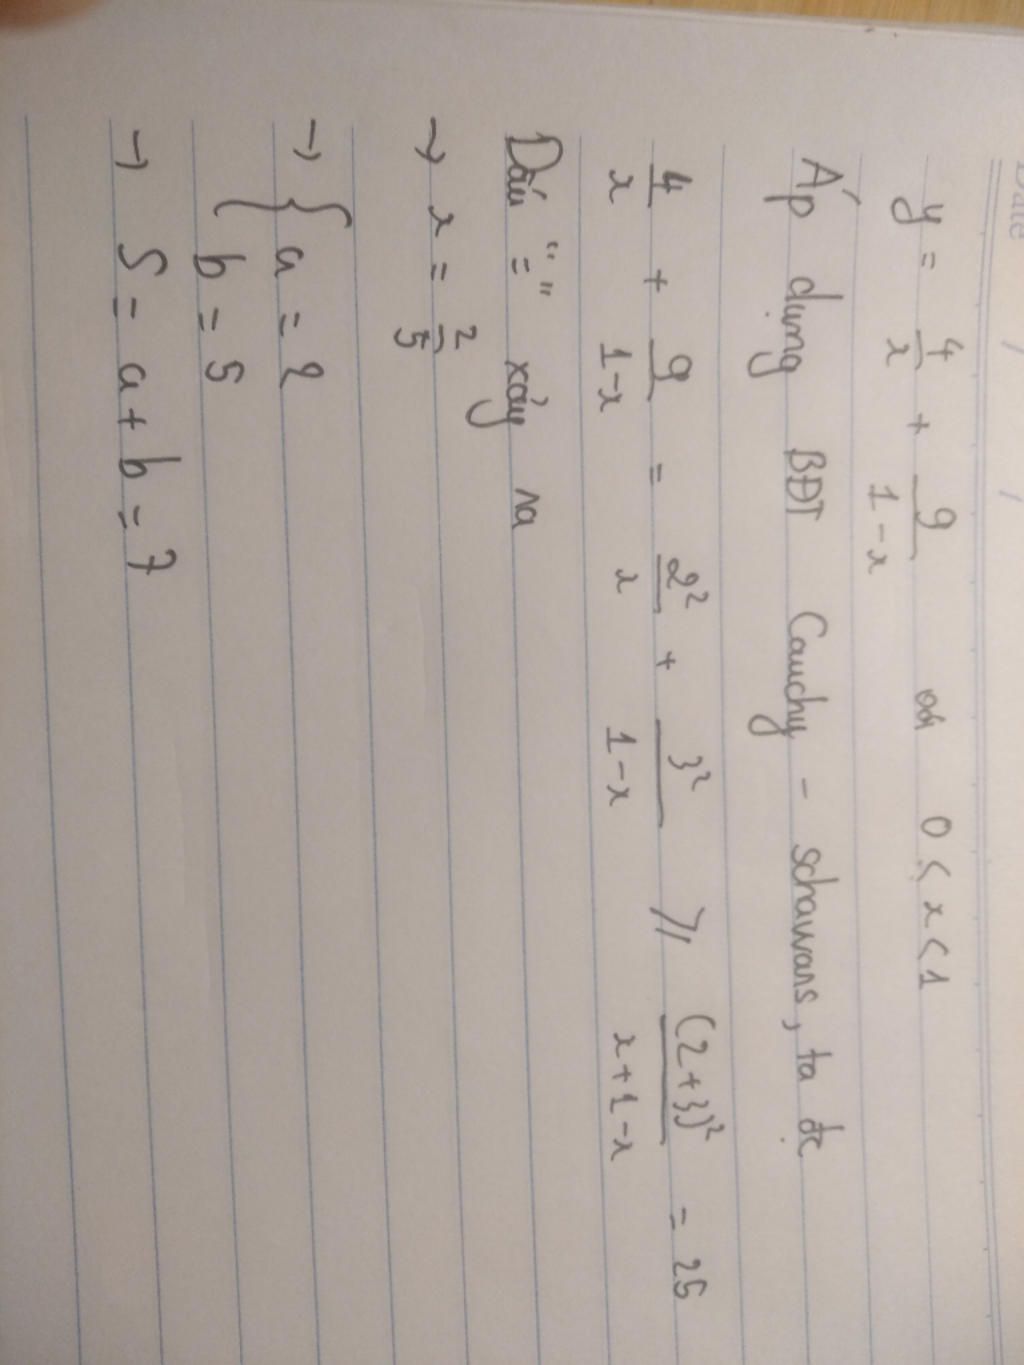 Date / /
y = 4/x + 9/(1-x) với 0 < x < 1
Áp dụng BĐT Cauchy - schawars, ta đc
4/x + 9/(1-x) = 2²/x + 3²/(1-x) ⩾ (2+3)²/(x+1-x) = 25
Dấu "=" xảy ra
→ x = 2/5
→ { a = 2
b = 5
→ S = a + b = 7